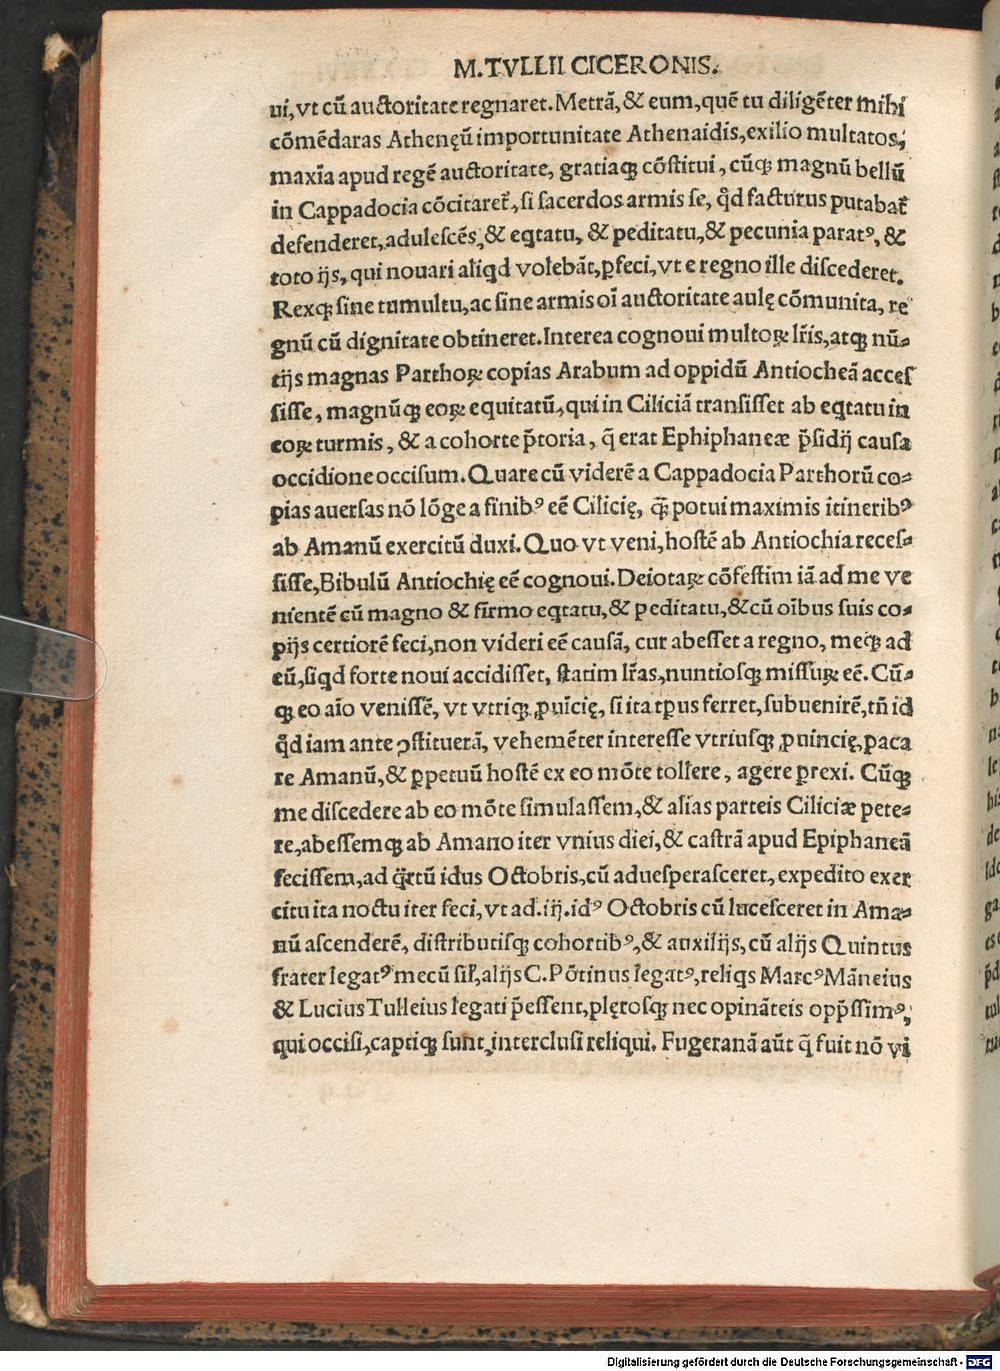 M.TVLLII CICERONIS.
ui, vt cū auctoritate regnaret. Metrā, & eum, quē tu diligēter mihi
cōmēdaras Athenęū importunitate Athenaidis, exilio multatos,
maxīa apud regē auctoritate, gratiaqꝫ cōstitui, cūqꝫ magnū bellū
in Cappadocia cōcitaret᷑, si sacerdos armis se, qd̄ facturus putabat᷑
defenderet, adulescēs, & eqtatu, & peditatu, & pecunia paratꝰ, &
toto ijs, qui nouari aliqd volebāt, ꝑfeci, vt e regno ille discederet.
Rexqꝫ sine tumultu, ac sine armis oī auctoritate aulę cōmunita, re
gnū cū dignitate obtineret. Interea cognoui multoꝝ lr̄is, atqꝫ nū-
tijs magnas Parthoꝝ copias Arabum ad oppidū Antiocheā acces
sisse, magnūqꝫ eoꝝ equitatū, qui in Ciliciā transisset ab eqtatu in
eoꝝ turmis, & a cohorte p̄toria, q̄ erat Ephiphaneæ p̄sidij causa
occidione occisum. Quare cū viderē a Cappadocia Parthorū co-
pias auersas nō lōge a finibꝰ eē Cilicię, q̄ potui maximis itineribꝰ
ab Amanū exercitū duxi. Quo vt veni, hostē ab Antiochia reces-
sisse, Bibulū Antiochię eē cognoui. Deiotaꝝ cōfestim iā ad me ve
nientē cū magno & firmo eqtatu, & peditatu, & cū oībus suis co-
pijs certiorē feci, non videri eē causā, cur abesset a regno, meqꝫ ad
eū, siqd forte noui accidisset, statim lr̄as, nuntiosqꝫ missuꝝ eē. Cū-
qꝫ eo aīo venissē, vt vtriqꝫ ꝓuīcię, si ita tp̄us ferret, subuenirē, tn̄ id
qd̄ iam ante ꝯstituerā, vehemēter interesse vtriusqꝫ ꝓuincię, paca
re Amanū, & ꝑpetuū hostē ex eo mōte tollere, agere ꝑrexi. Cūqꝫ
me discedere ab eo mōte simulassem, & alias parteis Ciliciæ pete-
re, abessemqꝫ ab Amano iter vnius diei, & castrā apud Epiphaneā
fecissem, ad q̄rtū idus Octobris, cū aduesperasceret, expedito exer
citu ita noctu iter feci, vt ad. iij. idꝰ Octobris cū lucesceret in Ama-
nū ascenderē, distributisqꝫ cohortibꝰ, & auxilijs, cū alijs Quintus
frater legatꝰ mecū sil̄, alijs C. Pōtinus legatꝰ, reliqs Marcꝰ Māneius
& Lucius Tulleius legati p̄essent, plęrosqꝫ nec opināteis opp̄ssimꝰ,
qui occisi, captiqꝫ sunt, interclusi reliqui. Fugeranā aūt q̄ fuit nō vi
Digitalisierung gefördert durch die Deutsche Forschungsgemeinschaft - DFG